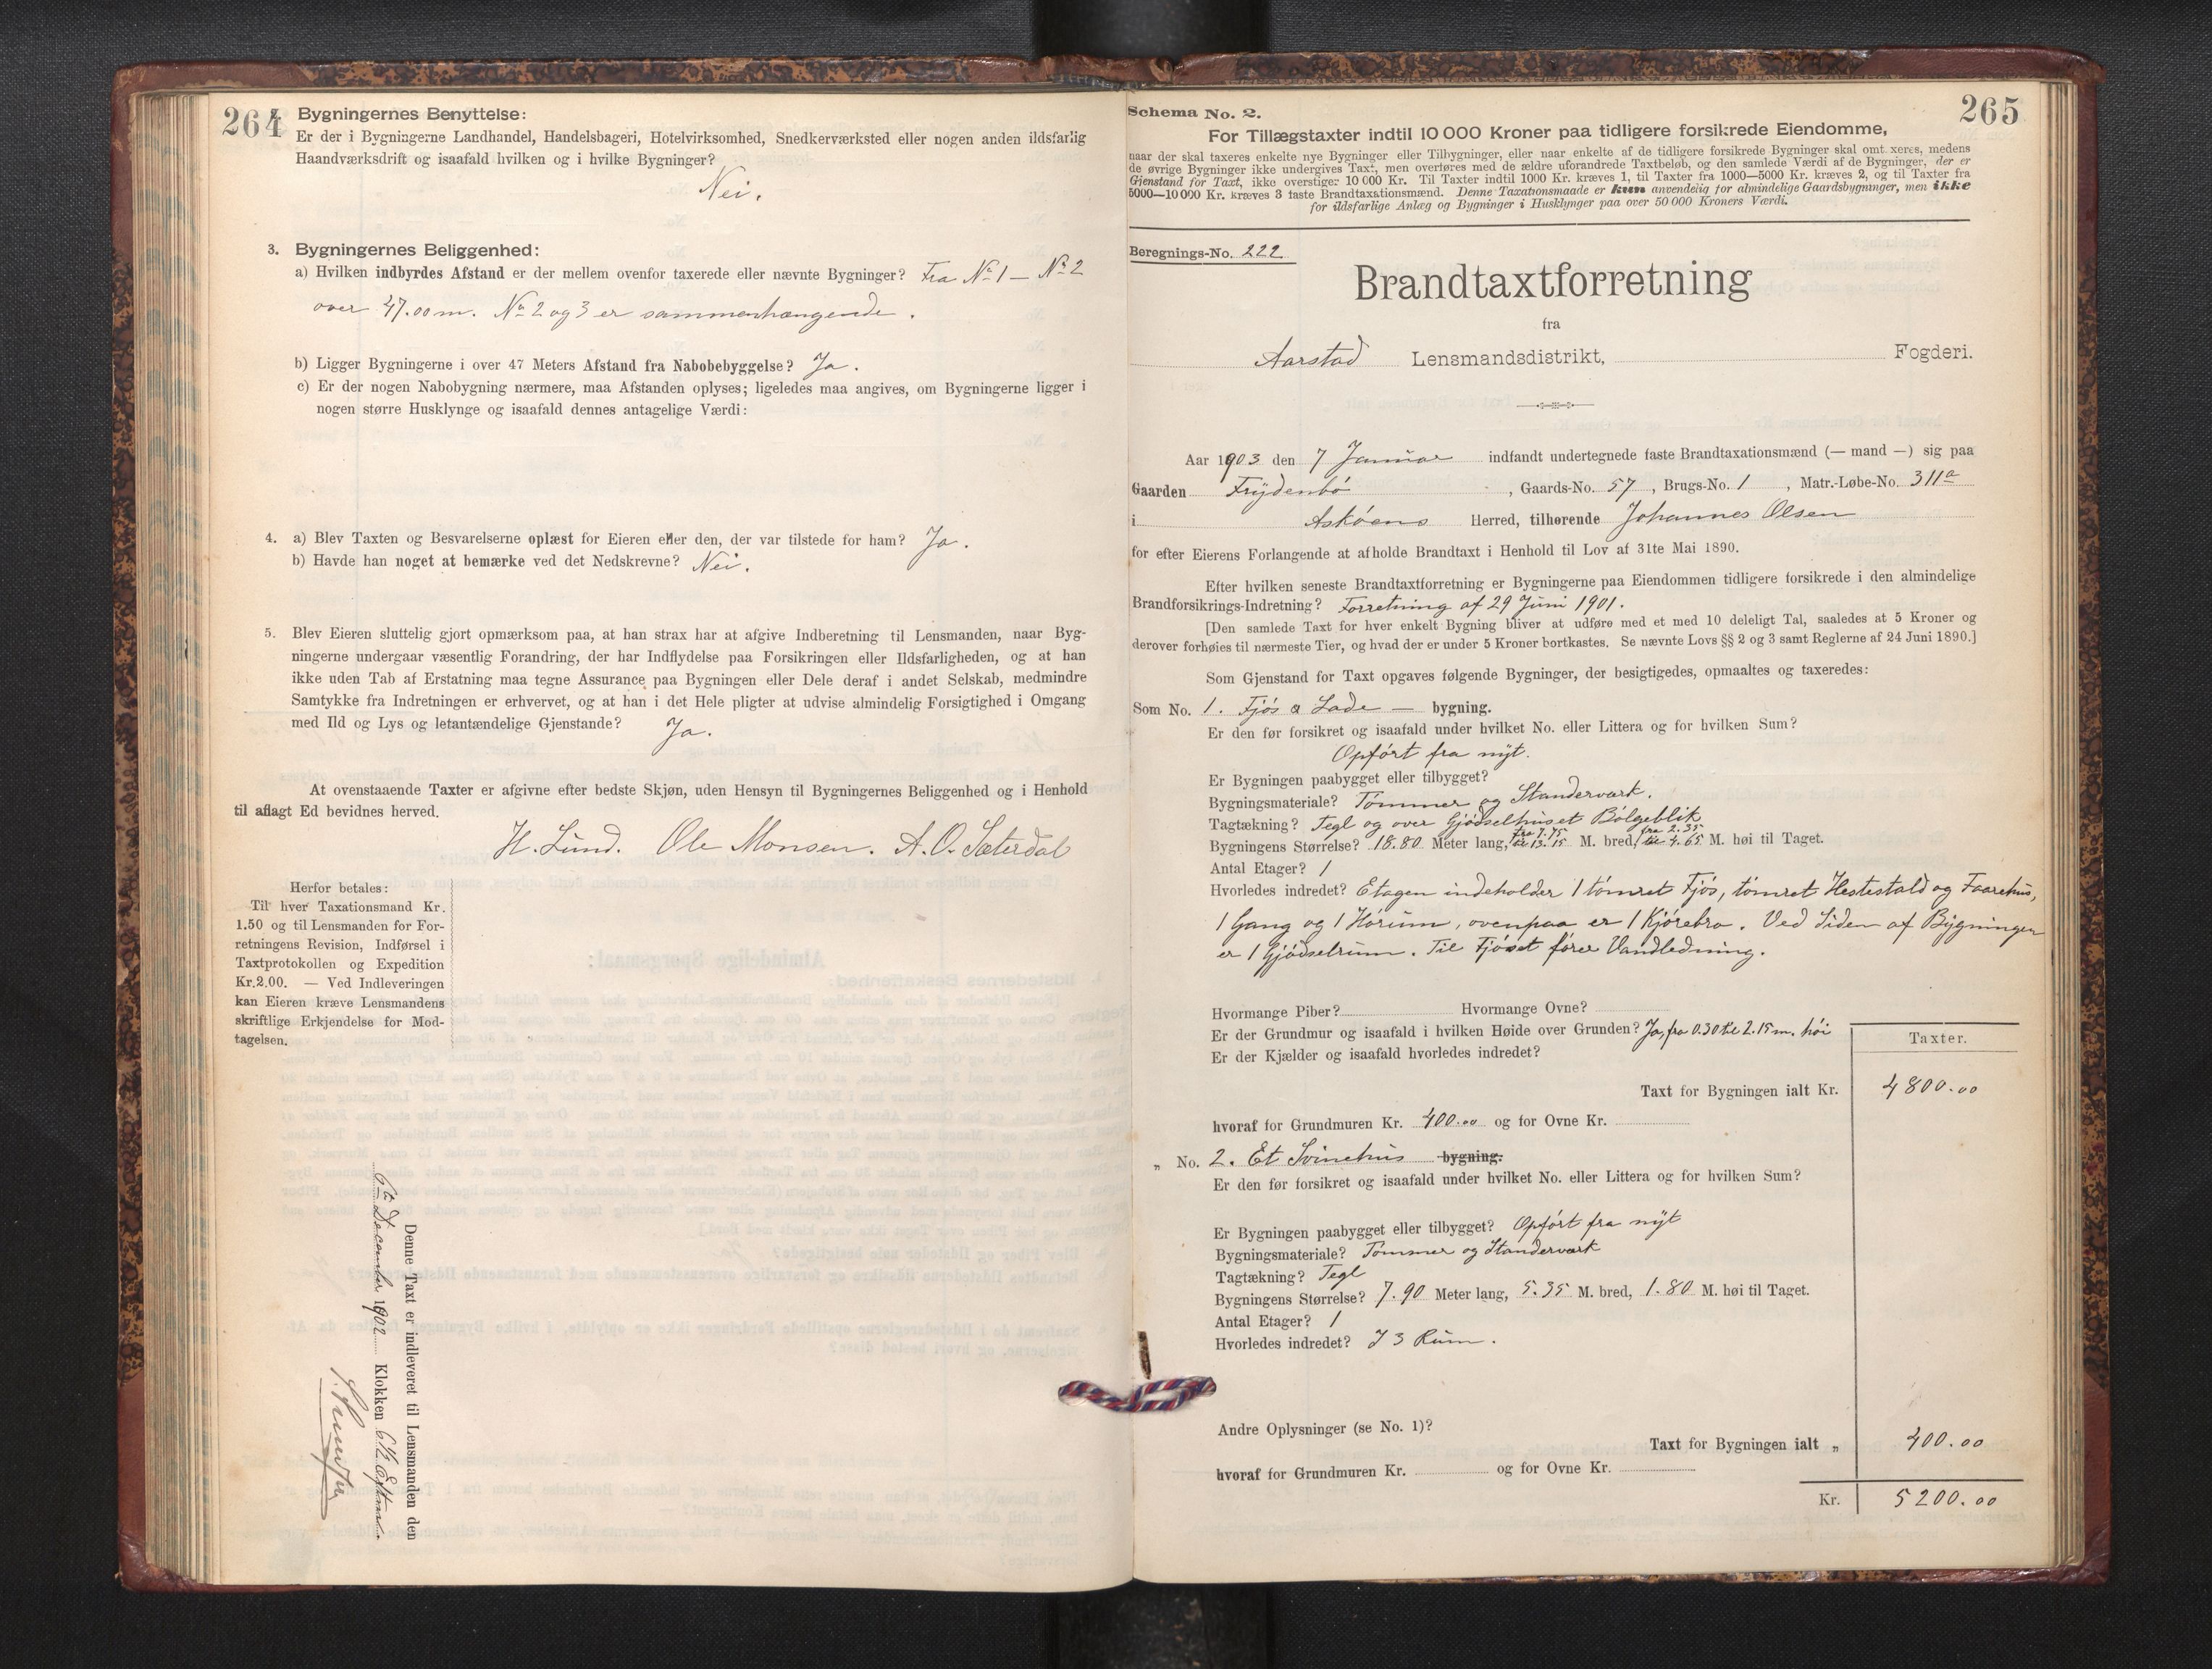 264
Bygningernes Benyttelse:
Er der i Bygningerne Landhandel, Handelsbageri, Hotelvirksomhed, Snedkerværksted eller nogen anden ildsfarlig
Haandværksdrift og isaafald hvilken og i hvilke Bygninger?
Nei.
3. Bygningernes Beliggenhed:
a) Hvilken indbyrdes Afstand er der mellem ovenfor taxerede eller nævnte Bygninger? Fra No 1 — No 2
over 47.00 m. No 2 og 3 er sammenhængende.
b) Ligger Bygningerne i over 47 Meters Afstand fra Nabobebyggelse? Ja.
c) Er der nogen Nabobygning nærmere, maa Afstanden oplyses; ligeledes maa angives, om Bygningerne ligger i
nogen større Husklynge og isaafald dennes antagelige Værdi:
4. a) Blev Taxten og Besvarelserne oplæst for Eieren eller den, der var tilstede for ham? Ja.
b) Havde han noget at bemærke ved det Nedskrevne? Nei.
5. Blev Eieren sluttelig gjort opmærksom paa, at han strax har at afgive Indberetning til Lensmanden, naar Byg-
ningerne undergaar væsentlig Forandring, der har Indflydelse paa Forsikringen eller Ildsfarligheden, og at han
ikke uden Tab af Erstatning maa tegne Assurance paa Bygningen eller Dele deraf i andet Selskab, medmindre
Samtykke fra Indretningen er erhvervet, og at han i det Hele pligter at udvise almindelig Forsigtighed i Omgang
med Ild og Lys og letantændelige Gjenstande? Ja.
At ovenstaaende Taxter er afgivne efter bedste Skjøn, uden Hensyn til Bygningernes Beliggenhed og i Henhold
til aflagt Ed bevidnes herved.
H. Lund. Ole Monsen. A. O. Sæterdal
Herfor betales:
Til hver Taxationsmand Kr.
1.50 og til Lensmanden for For-
retningens Revision, Indførsel i
Taxtprotokollen og Expedition
Kr. 2.00. — Ved Indleveringen
kan Eieren kræve Lensmandens
skriftlige Erkjendelse for Mod-
tagelsen.
Denne Taxt er indleveret til Lensmanden den
6te December 1902 Klokken 6½ Eftm.
265
Schema No. 2.
For Tillægstaxter indtil 10 000 Kroner paa tidligere forsikrede Eiendomme,
naar der skal taxeres enkelte nye Bygninger eller Tilbygninger, eller naar enkelte af de tidligere forsikrede Bygninger skal omtaxeres, medens
de øvrige Bygninger ikke undergives Taxt, men overføres med de ældre uforandrede Taxtbeløb, og den samlede Værdi af de Bygninger, der er
Gjenstand for Taxt, ikke overstiger 10 000 Kr. Til Taxter indtil 1000 Kr. kræves 1, til Taxter fra 1000—5000 Kr. kræves 2, og til Taxter fra
5000—10 000 Kr. kræves 3 faste Brandtaxationsmænd. Denne Taxationsmaade er kun anvendelig for almindelige Gaardsbygninger, men ikke
for ildsfarlige Anlæg og Bygninger i Husklynger paa over 50 000 Kroners Værdi.
Beregnings-No. 222
Brandtaxtforretning
fra
Aarstad Lensmandsdistrikt, Fogderi.
Aar 1903 den 7 Januar indfandt undertegnede faste Brandtaxationsmænd (— mand —) sig paa
Gaarden Frydenbö, Gaards-No. 57, Brugs-No. 1, Matr.-Løbe-No. 311a
i Asköens Herred, tilhørende Johannes Olsen
for efter Eierens Forlangende at afholde Brandtaxt i Henhold til Lov af 31te Mai 1890.
Efter hvilken seneste Brandtaxtforretning er Bygningerne paa Eiendommen tidligere forsikrede i den almindelige
Brandforsikrings-Indretning? Forretning af 29 Juni 1901.
[Den samlede Taxt for hver enkelt Bygning bliver at udføre med et med 10 deleligt Tal, saaledes at 5 Kroner og
derover forhøies til nærmeste Tier, og hvad der er under 5 Kroner bortkastes. Se nævnte Lovs §§ 2 og 3 samt Reglerne af 24 Juni 1890.]
Som Gjenstand for Taxt opgaves følgende Bygninger, der besigtigedes, opmaaltes og taxeredes:
Som No. 1. Fjös & Lade — bygning.
Er den før forsikret og isaafald under hvilket No. eller Littera og for hvilken Sum?
Opfört fra nyt.
Er Bygningen paabygget eller tilbygget?
Bygningsmateriale? Tømmer og Standerværk.
Tagtækning? Tegl og over Gjödselhuset Bölgeblik
Bygningens Størrelse? 18.80 Meter lang, fra 7.75 til 13.15 M. bred, fra 2.35 til 4.65 M. høi til Taget.
Antal Etager? 1
Hvorledes indredet? Etagen indeholder 1 tömret Fjös, tömret Hestestald og Faarehus,
1 Gang og 1 Hörum, ovenpaa er 1 Kjörebro. Ved Siden af Bygningen
er 1 Gjödselrum. Til Fjöset förer Vandledning.
Hvormange Piber? Hvormange Ovne?
Er der Grundmur og isaafald i hvilken Høide over Grunden? Ja, fra 0.30 til 2.15 m. höi
Er der Kjælder og isaafald hvorledes indredet?
Taxter.
Taxt for Bygningen ialt Kr. 4800.00
hvoraf for Grundmuren Kr. 400.00 og for Ovne Kr.
„ No. 2. Et Svinehus bygning.
Er den før forsikret og isaafald under hvilket No. eller Littera og for hvilken Sum?
Er Bygningen paabygget eller tilbygget? Opfört fra nyt
Bygningsmateriale? Tømmer og Standerværk
Tagtækning? Tegl
Bygningens Størrelse? 7.90 Meter lang, 5.35 M. bred, 1.80 M. høi til Taget.
Antal Etager? 1
Hvorledes indredet? I 3 Rum.
Andre Oplysninger (se No. 1)?
Taxt for Bygningen ialt „ 400.00
hvoraf for Grundmuren Kr. og for Ovne Kr.
Kr. 5200.00